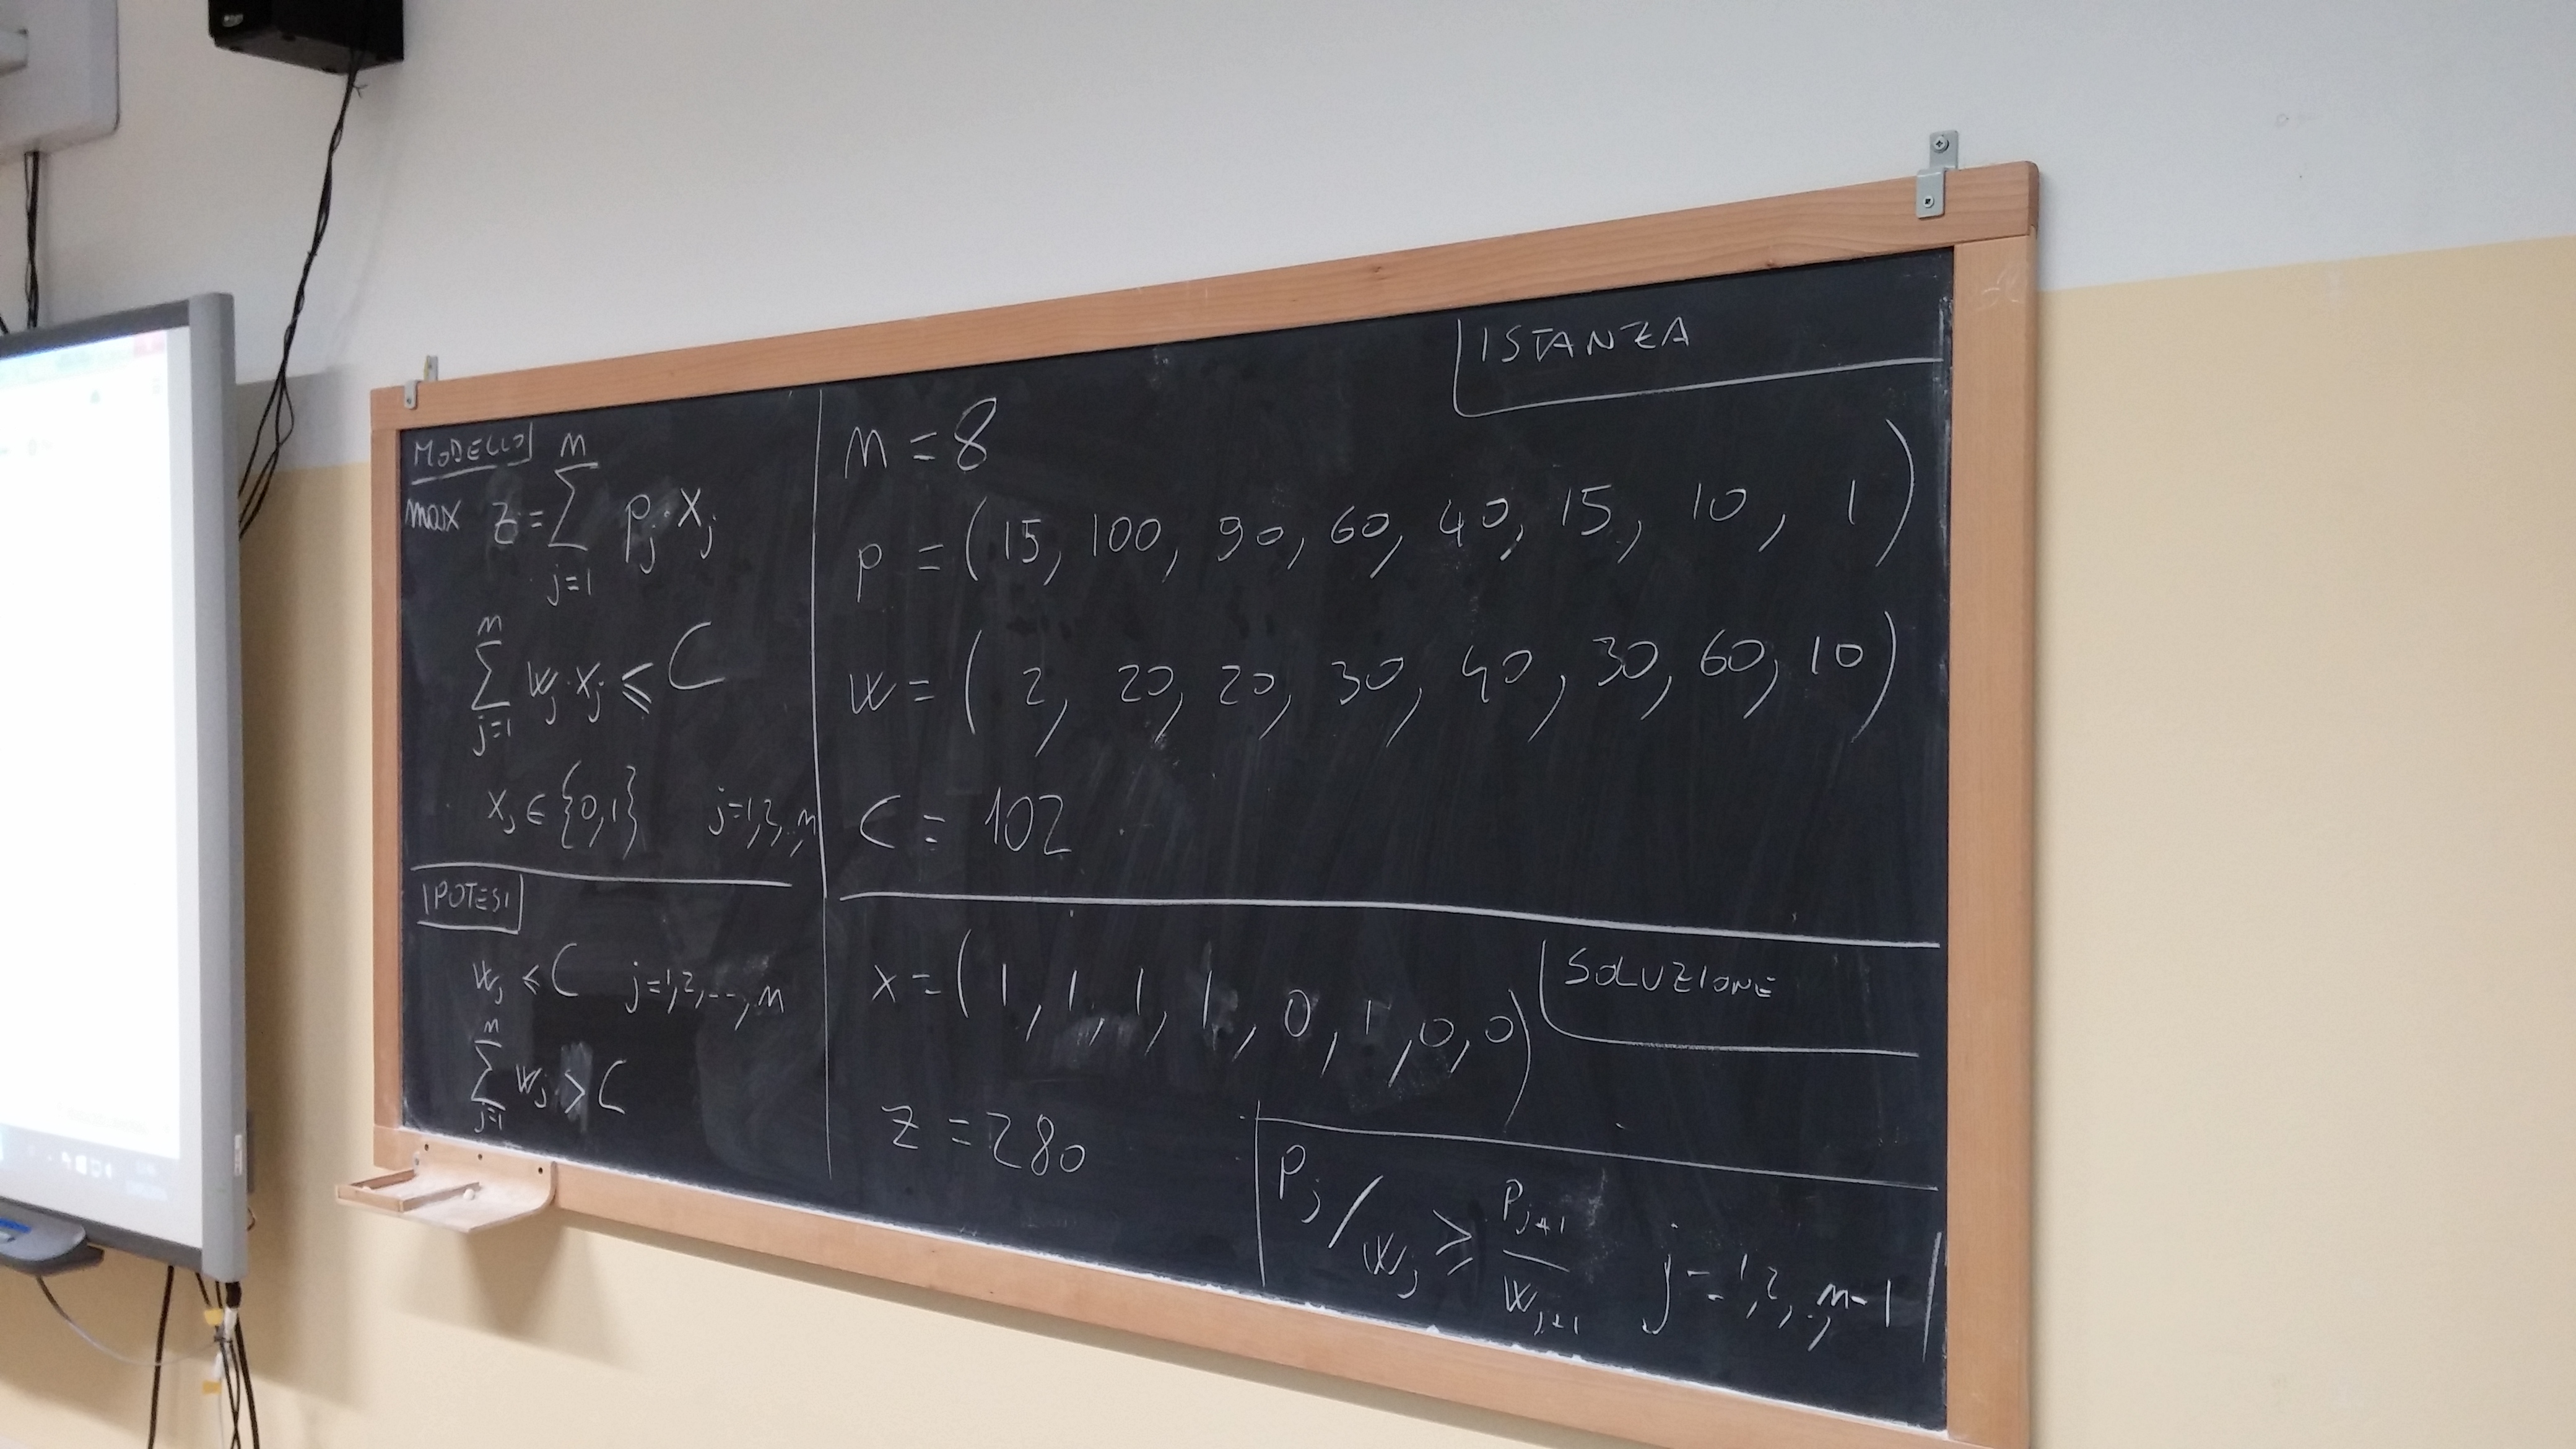 MODELLO
max z = ∑_{j=1}^{m} p_j · x_j
∑_{j=1}^{m} w_j · x_j ≤ C
x_j ∈ {0,1} j=1,2,..,m
IPOTESI
w_j ≤ C j=1,2,--,m
∑_{j=1}^{m} w_j > C
ISTANZA
m = 8
p = (15, 100, 90, 60, 40, 15, 10, 1)
w = (2, 20, 20, 30, 40, 30, 60, 10)
C = 102
SOLUZIONE
x = (1, 1, 1, 1, 0, 1, 0, 0)
z = 280
p_j / w_j ≥ p_{j+1} / w_{j+1} j = 1,2,..,m-1